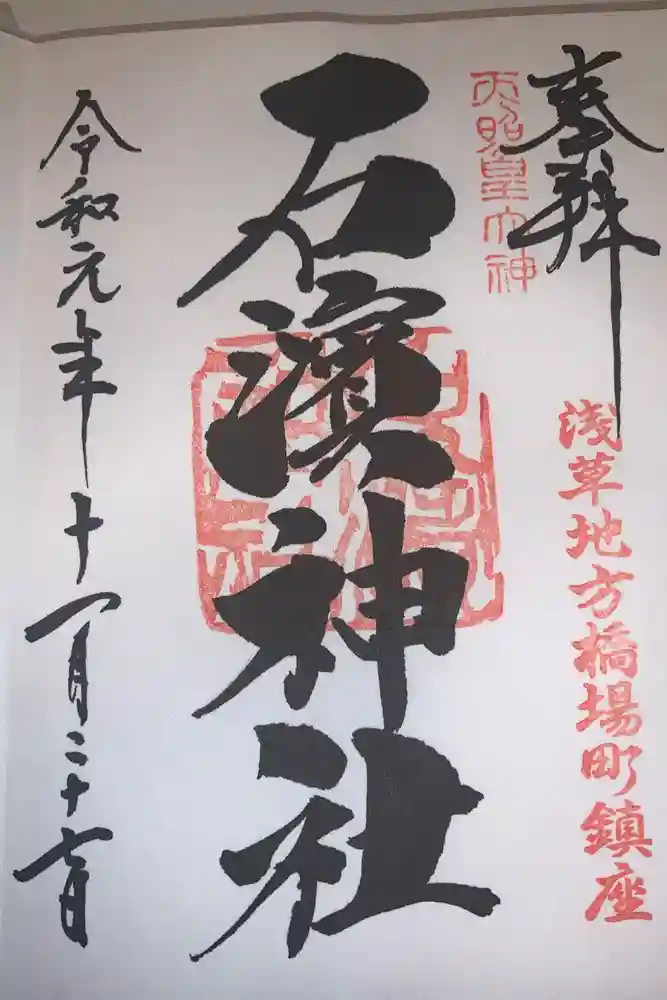 奉拝
天照皇大神
浅草地方橋場町鎮座
石濱神社
令和元年十一月二十七日